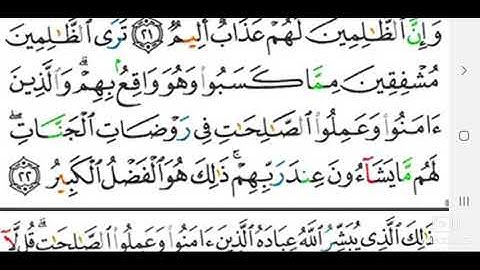 وَإِنَّ ٱلظَّٰلِمِينَ لَهُمْ عَذَابٌ أَلِيمٌ ٢١ تَرَى ٱلظَّٰلِمِينَ
مُشْفِقِينَ مِمَّا كَسَبُوا۟ وَهُوَ وَاقِعٌۢ بِهِمْ ۗ وَٱلَّذِينَ
ءَامَنُوا۟ وَعَمِلُوا۟ ٱلصَّٰلِحَٰتِ فِى رَوْضَاتِ ٱلْجَنَّاتِ ۖ
لَهُم مَّا يَشَآءُونَ عِندَ رَبِّهِمْ ۚ ذَٰلِكَ هُوَ ٱلْفَضْلُ ٱلْكَبِيرُ ٢٢
ذَٰلِكَ ٱلَّذِى يُبَشِّرُ ٱللَّهُ عِبَادَهُ ٱلَّذِينَ ءَامَنُوا۟ وَعَمِلُوا۟ ٱلصَّٰلِحَٰتِ ۗ قُل لَّآ